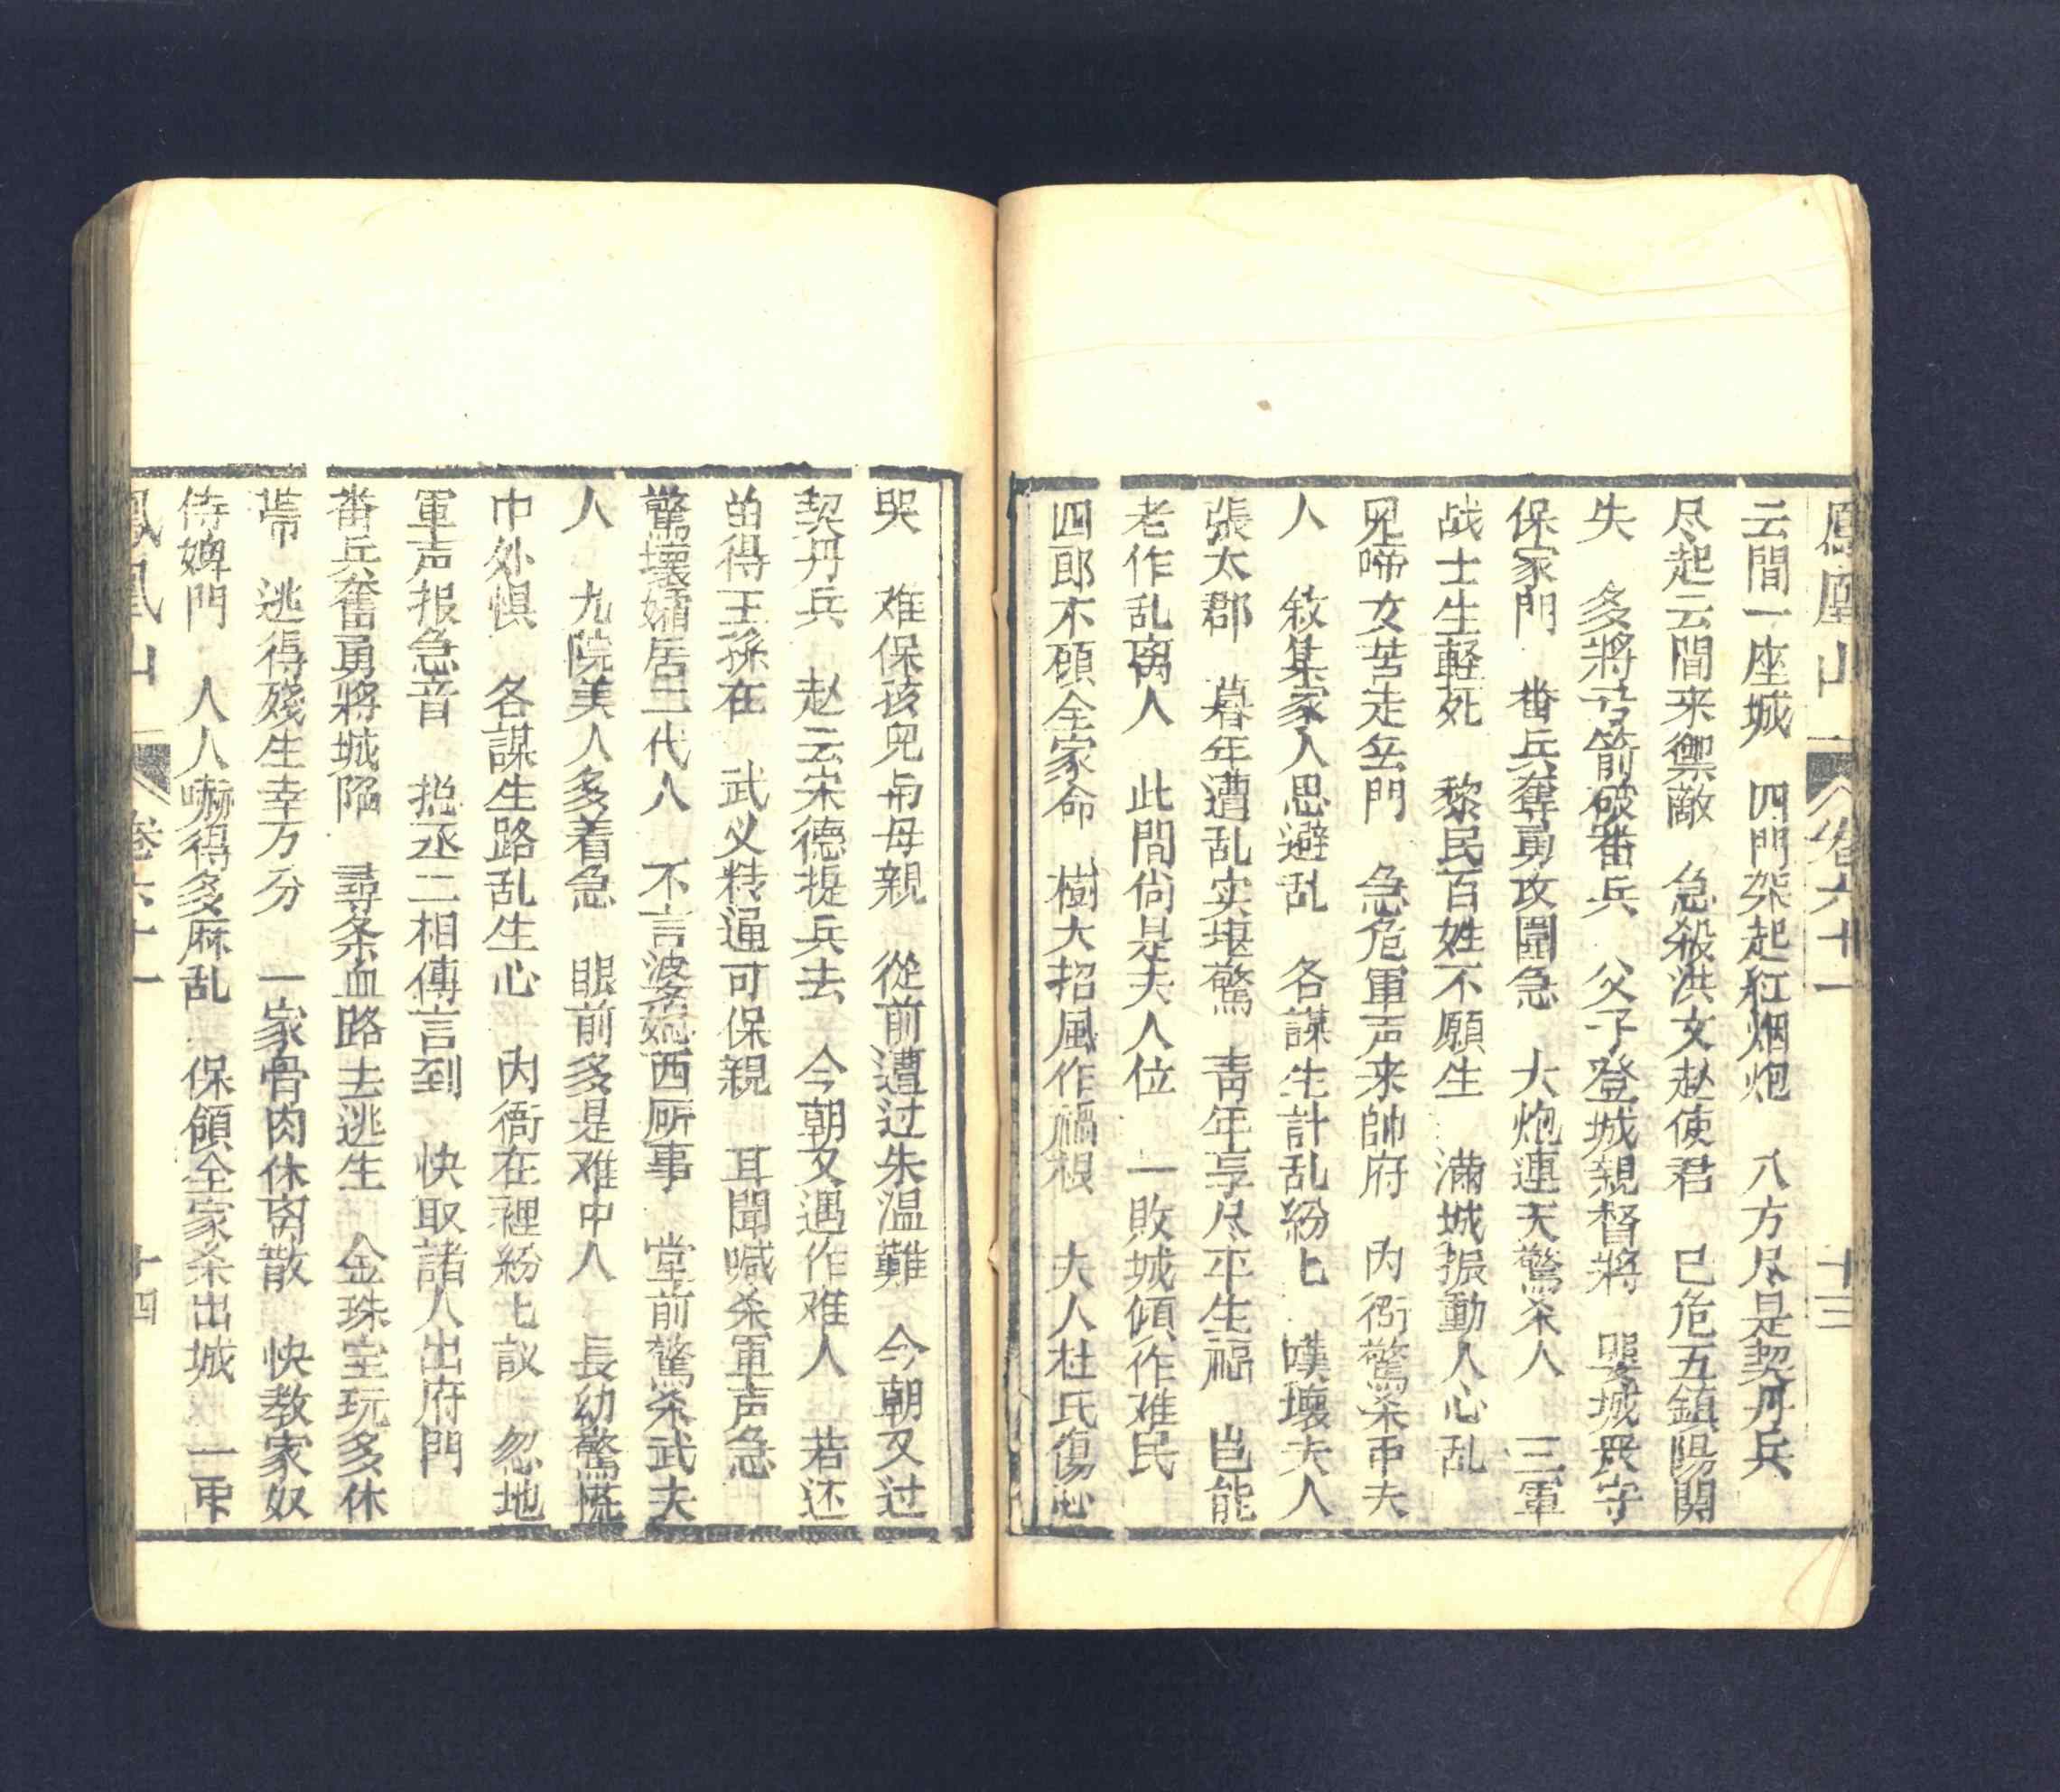 鳳凰山 卷六十一 十三
云間一座城 四門架起紅烟炮 八方尽是契丹兵
尽起云間来禦敵 急殺洪文赵使君 已危五鎮陽関
失 多將弓箭破番兵 父子登城親督將 嬰城畏守
保家門 番兵奪勇攻圍急 大炮連天驚杀人 三軍
战士生軽死 黎民百姓不願生 滿城振動人心乱
児啼女苦走出門 急危軍声来帥府 内衙驚杀帀夫
人 敘集家人思避乱 各謀生計乱紛匕 嘆壞夫人
張太郡 暮年遭乱实堪驚 青年享尽平生福 岂能
老作乱离人 此間尚是夫人位 一敗城傾作难民
四郎不顧全家命 樹大招風作禍根 夫人杜氏傷心
哭 难保孩児与母親 從前遭过朱温難 今朝又过
契丹兵 赵云宋德提兵去 今朝又遇作难人 若还
留得王孫在 武乂精通可保親 耳聞喊杀軍声急
驚壞孀居三代人 不言婆媳西厮事 堂前驚杀武夫
人 九院美人多着急 眼前多是难中人 長幼驚慌
中外惧 各謀生路乱生心 内衙在裡紛匕議 忽地
軍声报急音 抱丞二相傳言到 快取諸人出府門
番兵奮勇將城陷 尋条血路去逃生 金珠宝玩多休
帶 逃得殘生幸万分 一家骨肉休离散 快教家奴
侍婢門 人人嚇得多麻乱 保領全家杀出城 一重
鳳凰山 卷六十一 十四